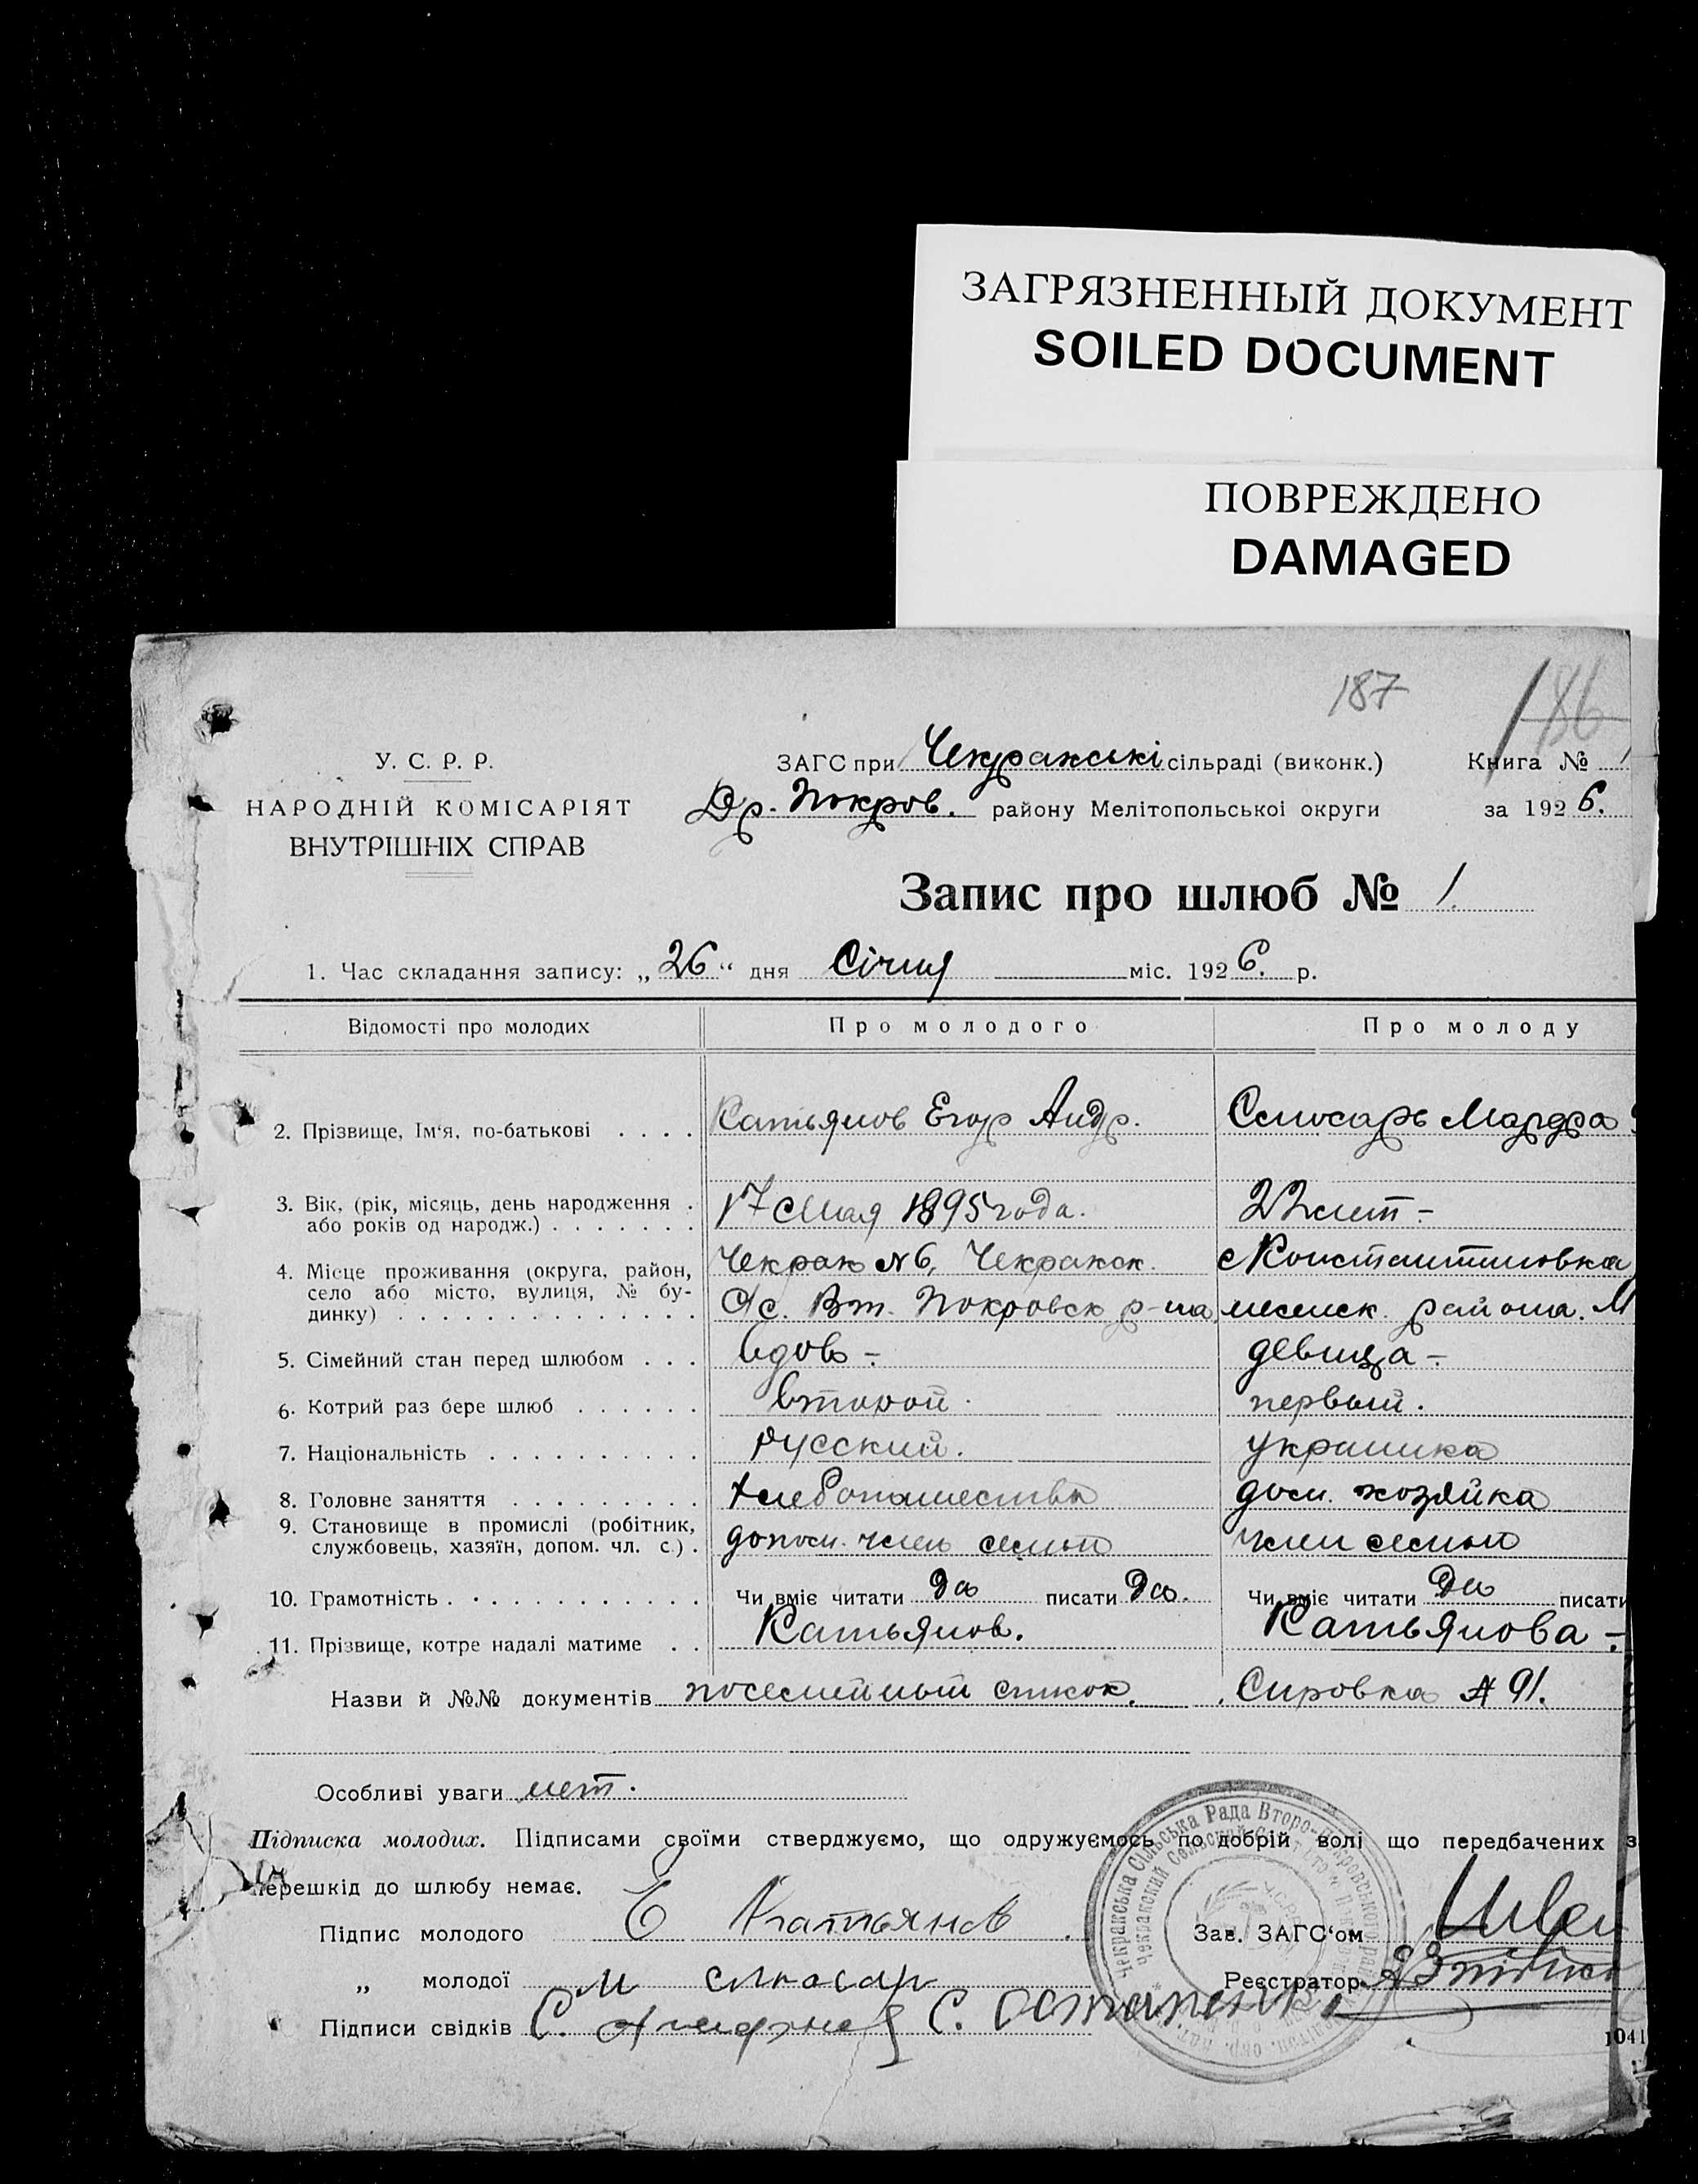 ЗАГРЯЗНЕННЫЙ ДОКУМЕНТ
SOILED DOCUMENT
ПОВРЕЖДЕНО
DAMAGED
187
186
У. С. Р. Р.
НАРОДНІЙ КОМІСАРІЯТ
ВНУТРІШНІХ СПРАВ
ЗАГС при Чекракські сільраді (виконк.) Книга № 1
Др. Покров. району Мелітопольської округи за 1926.
Запис про шлюб № 1.
1. Час складання запису: „26“ дня Січня міс. 1926. р.
Відомості про молодих Про молодого Про молоду
2. Прізвище, Ім'я, по-батькові Катьянов Егор Андр. Слюсарь Марфа
3. Вік, (рік, місяць, день народження або років од народж.) 17 Мая 1895 года. 22 лет -
4. Місце проживання (округа, район, село або місто, вулиця, № будинку) Чекрак №6, Чекракск. с/с. Вт. Покровск р-на, с Константиновка района. М
5. Сімейний стан перед шлюбом вдов - девица -
6. Котрий раз бере шлюб второй. первый.
7. Національність русский. украинка
8. Головне заняття хлебопашество дом. хозяйка
9. Становище в промислі (робітник, службовець, хазяїн, допом. чл. с.) допом. член семьи член семьи
10. Грамотність Чи вміє читати да писати да. Чи вміє читати да писати
11. Прізвище, котре надалі матиме Катьянов. Катьянова -
Назви й №№ документів посемейный список. № 91.
Особливі уваги нет.
Підписка молодих. Підписами своїми стверджуємо, що одружуємось по добрій волі що передбачених з
перешкід до шлюбу немає.
Підпис молодого Е Катьянов Зав. ЗАГС'ом
„ молодої м слюсар Реєстратор
Підписи свідків С. С. Остапенко
Чекракська Сільська Рада Второ-Покровського
Чекракский Сельский
1041